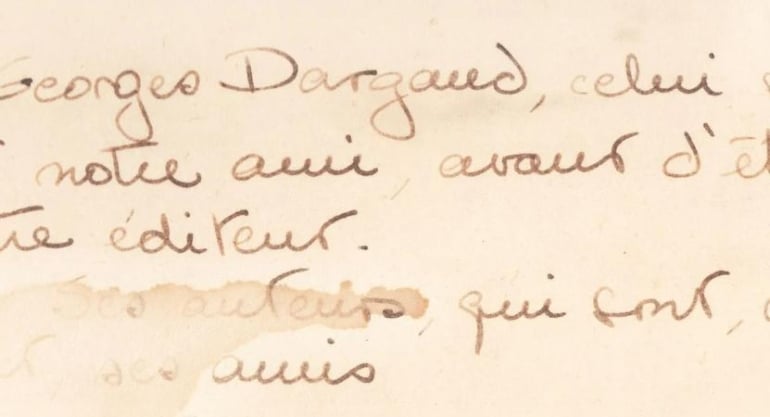 Georges Dargaud, celui
notre ami, avant d'êt
tre éditeur.
Ses auteurs, qui sont,
ses amis